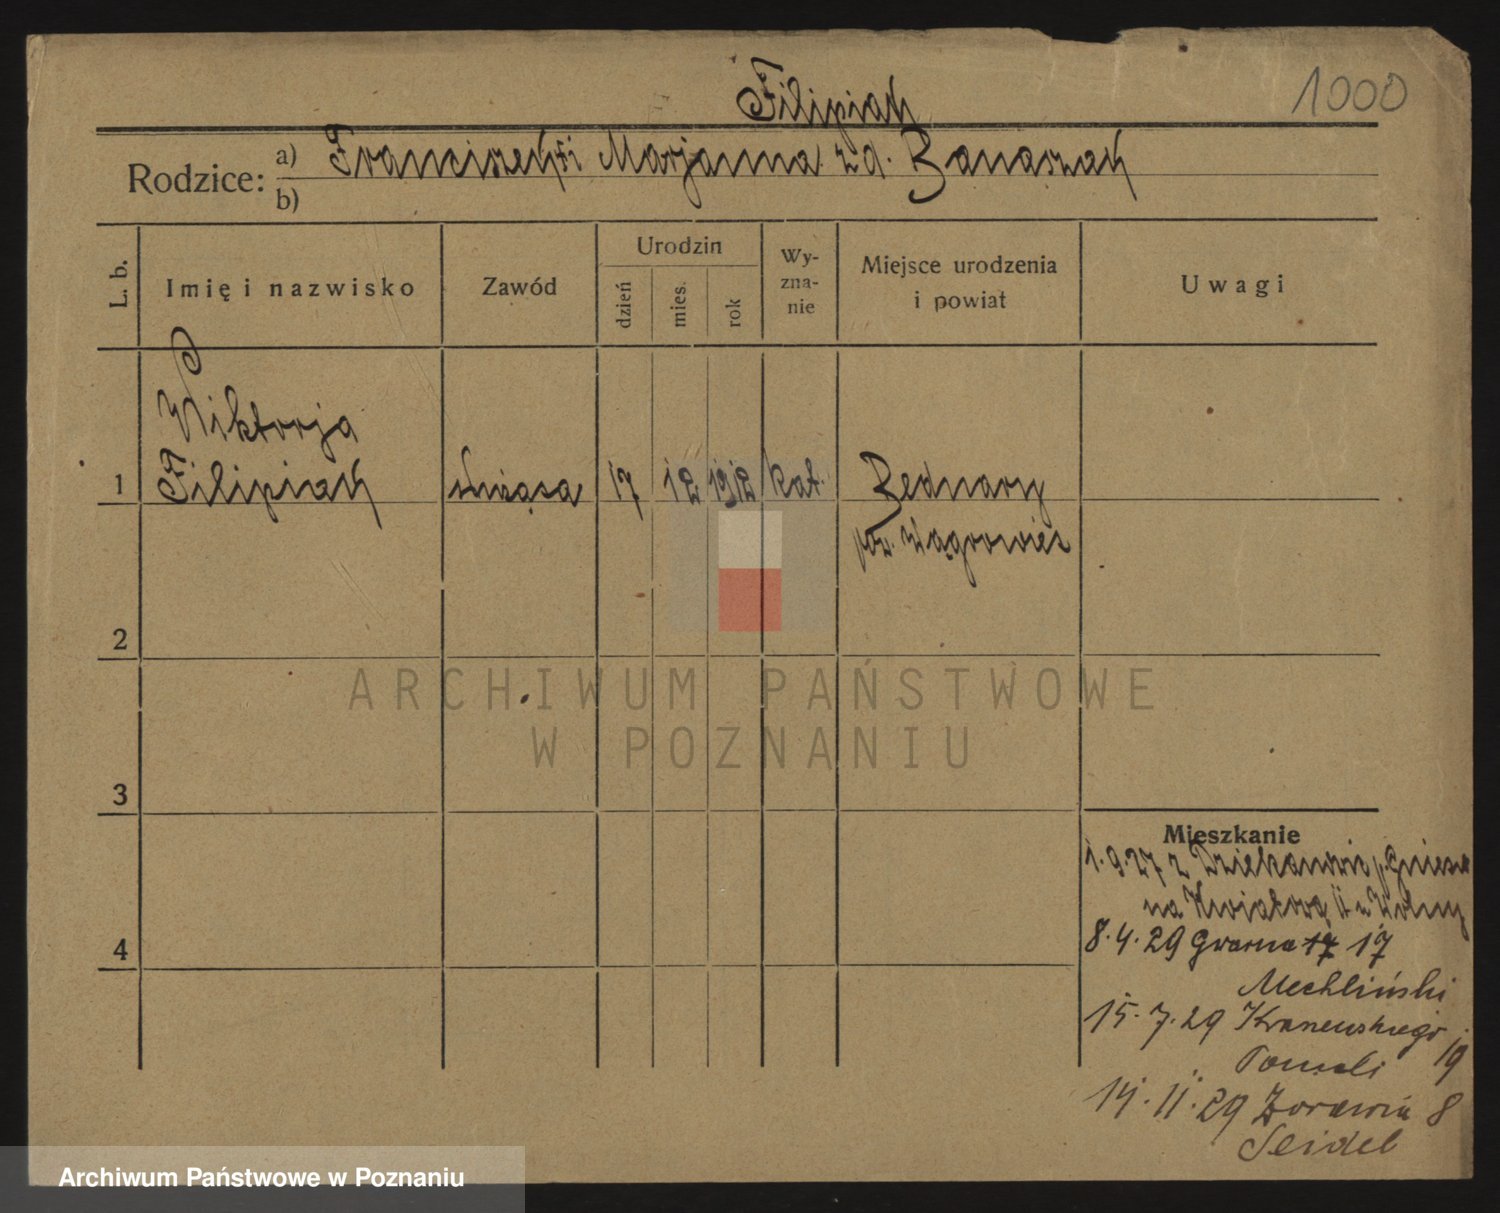 1000
Filipiak
Rodzice:
a) Franciszek i Marjanna zd. Banaszak
b)
L. b.
Imię i nazwisko
Zawód
Urodzin
dzień
mies.
rok
Wy-
zna-
nie
Miejsce urodzenia
i powiat
Uwagi
Wiktorja
1 Filipiak służąca 17 12 1912 kat. Bednary
pow. Wągrowiec
2
3
4
Mieszkanie
1.9.27 z Dziekanowic p. Gniezno
na Kwiatową 11
8.4.29 Gwarna 17 17
Mechliński
15.7.29 Kraszewskiego 19
14.11.29 Żórawia 8
Seidel
ARCHIWUM PAŃSTWOWE
W POZNANIU
Archiwum Państwowe w Poznaniu